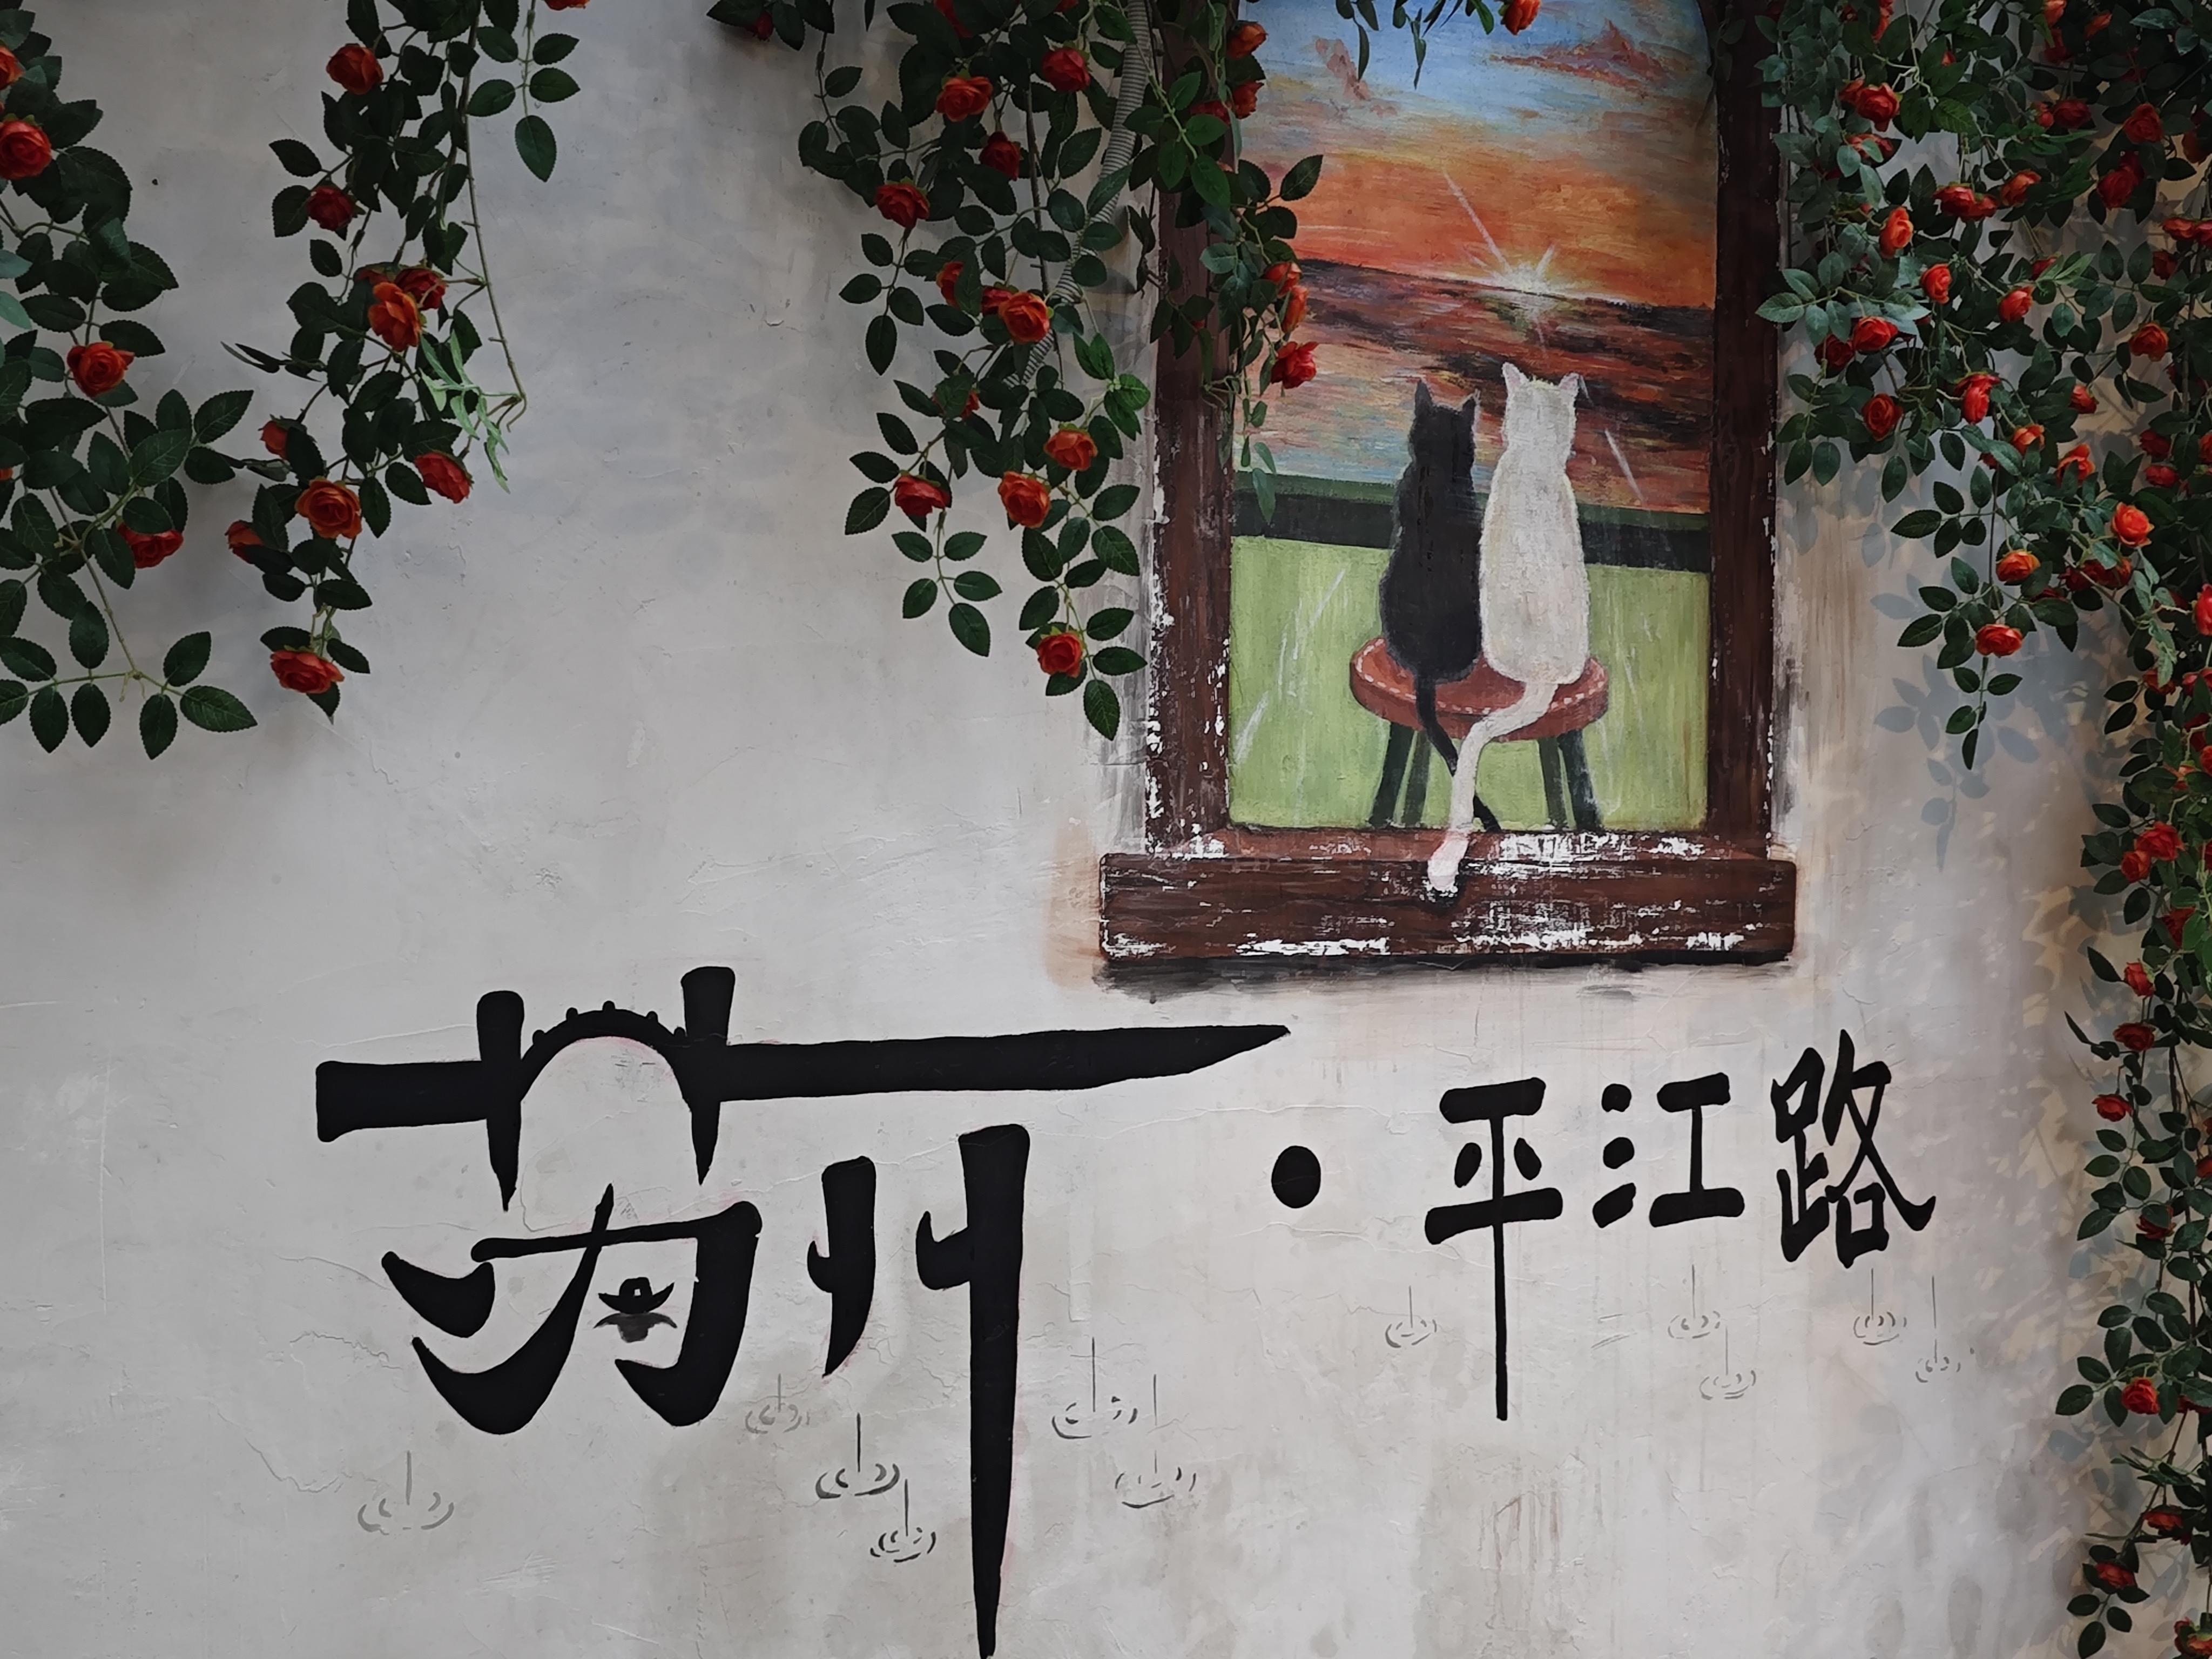 苏州·平江路